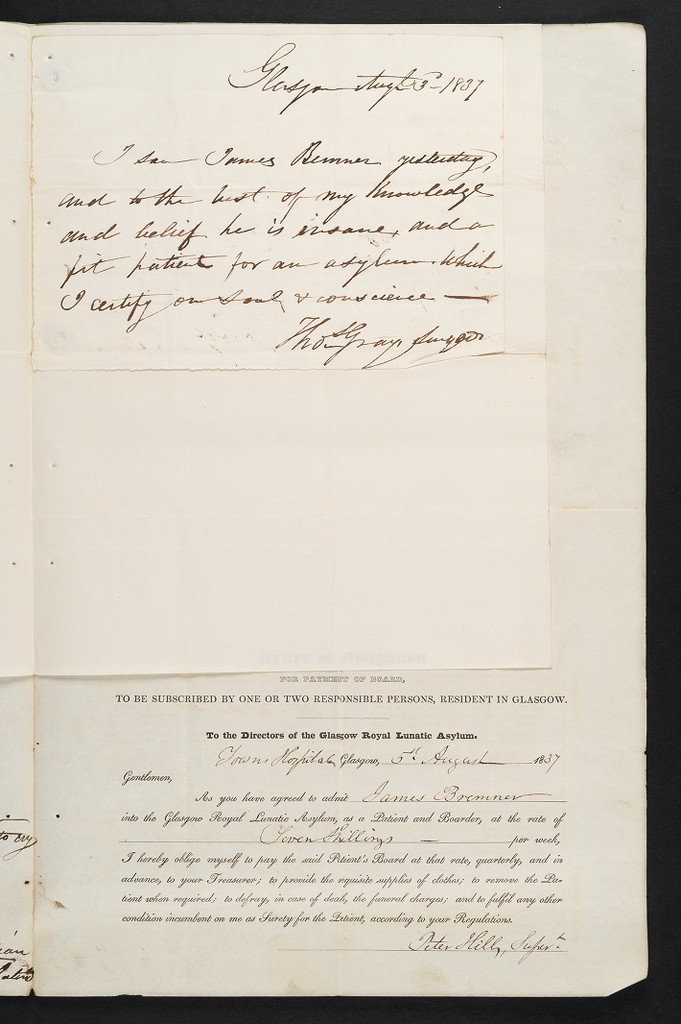 Glasgow Augt 3d 1837
I saw James Bremner yesterday,
and to the best of my knowledge
and belief he is insane, and a
fit patient for an asylum. Which
I certify on soul & conscience —
Thos Gray Surgeon
FOR PAYMENT OF BOARD,
TO BE SUBSCRIBED BY ONE OR TWO RESPONSIBLE PERSONS, RESIDENT IN GLASGOW.
To the Directors of the Glasgow Royal Lunatic Asylum.
Towns Hospital, Glasgow, 5th August 1837
Gentlemen,
As you have agreed to admit James Bremner
into the Glasgow Royal Lunatic Asylum, as a Patient and Boarder, at the rate of
Seven Shillings — per week,
I hereby oblige myself to pay the said Patient's Board at that rate, quarterly, and in
advance, to your Treasurer; to provide the requisite supplies of clothes; to remove the Pa-
tient when required; to defray, in case of death, the funeral charges; and to fulfil any other
condition incumbent on me as Surety for the Patient, according to your Regulations.
Peter Hill, Supert